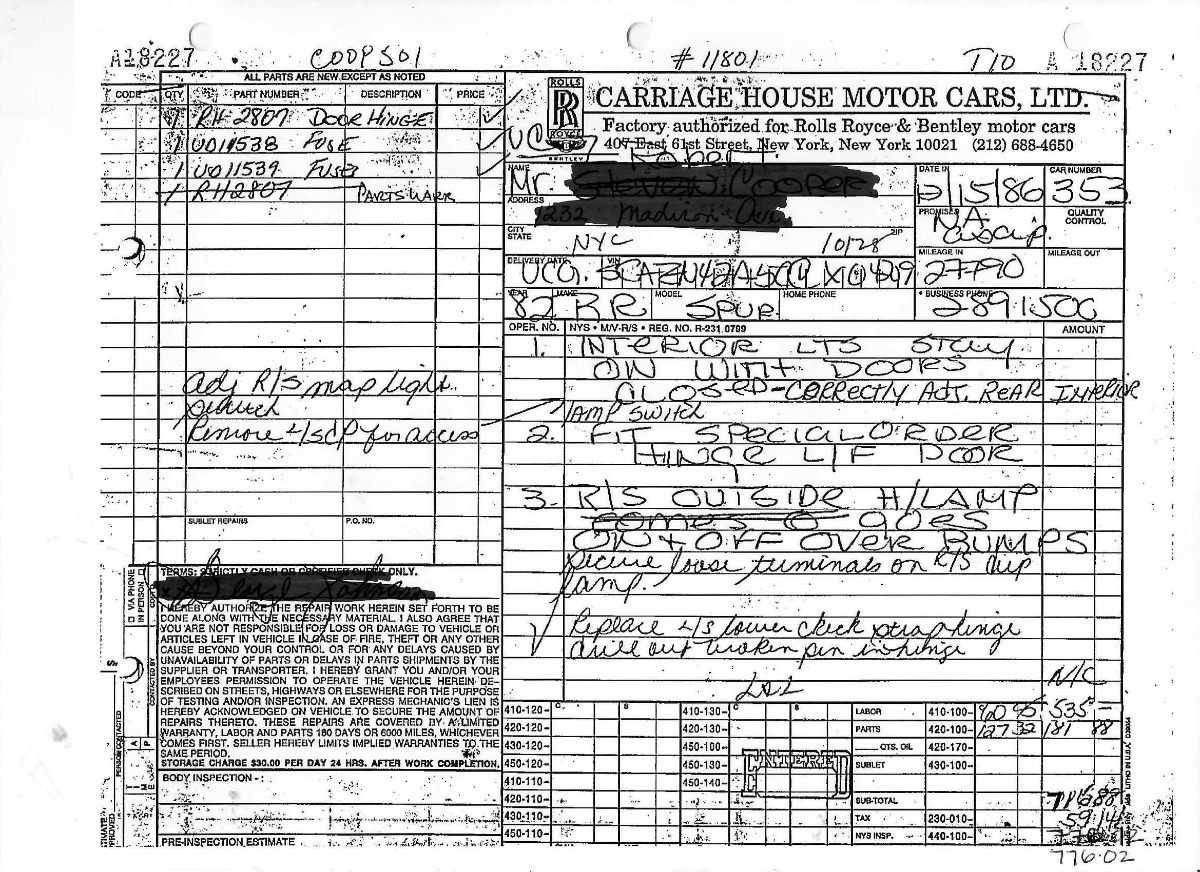 A18227 COOPS01 #11801 T10 A 18227
ALL PARTS ARE NEW EXCEPT AS NOTED
CODE QTY. PART NUMBER DESCRIPTION PRICE
1 RH-2807 DOOR HINGE
1 UO11538 FUSE
1 UO11539 FUSE
1 RH2807 PARTS WARR
adj R/S map light
switch
Remove L/S CP for access
SUBLET REPAIRS P.O. NO.
ROLLS
RR
ROYCE
BENTLEY
CARRIAGE HOUSE MOTOR CARS, LTD.
Factory authorized for Rolls Royce & Bentley motor cars
407 East 61st Street, New York, New York 10021 (212) 688-4650
UCO
NAME
Mr. Cooper
ADDRESS
1232 Madison Ave.
CITY
STATE
NYC
ZIP
10128
DATE IN
12/15/86
CAR NUMBER
353
PROMISED
NA
asap.
QUALITY
CONTROL
DELIVERY DATE
UCO.
VIN
MILEAGE IN
27790
MILEAGE OUT
YEAR
82
MAKE
RR
MODEL
SPUR
HOME PHONE
BUSINESS PHONE
2891500
OPER. NO. NYS • M/V-R/S • REG. NO. R-231 0709 AMOUNT
1. INTERIOR LTS STAY
ON WITH DOORS
CLOSED-CORRECTLY ADJ. REAR INTERIOR
LAMP SWITCH
2. FIT SPECIAL ORDER
HINGE L/F DOOR
3. R/S OUTSIDE H/LAMP
COMES & GOES
ON & OFF OVER BUMPS
secure loose terminals on R/S dip
lamp.
Replace L/S lower check strap hinge
drill out broken pin in hinge
N/C
TERMS: STRICTLY CASH OR CERTIFIED CHECK ONLY.
I HEREBY AUTHORIZE THE REPAIR WORK HEREIN SET FORTH TO BE
DONE ALONG WITH THE NECESSARY MATERIAL. I ALSO AGREE THAT
YOU ARE NOT RESPONSIBLE FOR LOSS OR DAMAGE TO VEHICLE OR
ARTICLES LEFT IN VEHICLE IN CASE OF FIRE, THEFT OR ANY OTHER
CAUSE BEYOND YOUR CONTROL OR FOR ANY DELAYS CAUSED BY
UNAVAILABILITY OF PARTS OR DELAYS IN PARTS SHIPMENTS BY THE
SUPPLIER OR TRANSPORTER. I HEREBY GRANT YOU AND/OR YOUR
EMPLOYEES PERMISSION TO OPERATE THE VEHICLE HEREIN DE-
SCRIBED ON STREETS, HIGHWAYS OR ELSEWHERE FOR THE PURPOSE
OF TESTING AND/OR INSPECTION. AN EXPRESS MECHANIC'S LIEN IS
HEREBY ACKNOWLEDGED ON VEHICLE TO SECURE THE AMOUNT OF
REPAIRS THERETO. THESE REPAIRS ARE COVERED BY A LIMITED
WARRANTY, LABOR AND PARTS 180 DAYS OR 6000 MILES, WHICHEVER
COMES FIRST. SELLER HEREBY LIMITS IMPLIED WARRANTIES TO THE
SAME PERIOD.
STORAGE CHARGE $30.00 PER DAY 24 HRS. AFTER WORK COMPLETION.
BODY INSPECTION - :
PRE-INSPECTION ESTIMATE
VIA PHONE
IN PERSON
CONTACTED BY
PERSON CONTACTED
A P
TIME
410-120- C S 410-130- C S LABOR 410-100- 535 -
420-120- 420-130- PARTS 420-100- 127 32 181 88
430-120- 450-100- QTS. OIL 420-170-
450-120- 450-130- SUBLET 430-100-
410-110- 450-140-
420-110- SUB-TOTAL 716.88
430-110- TAX 230-010- 59.14
450-110- NYS INSP. 440-100-
ENTERED
776.02